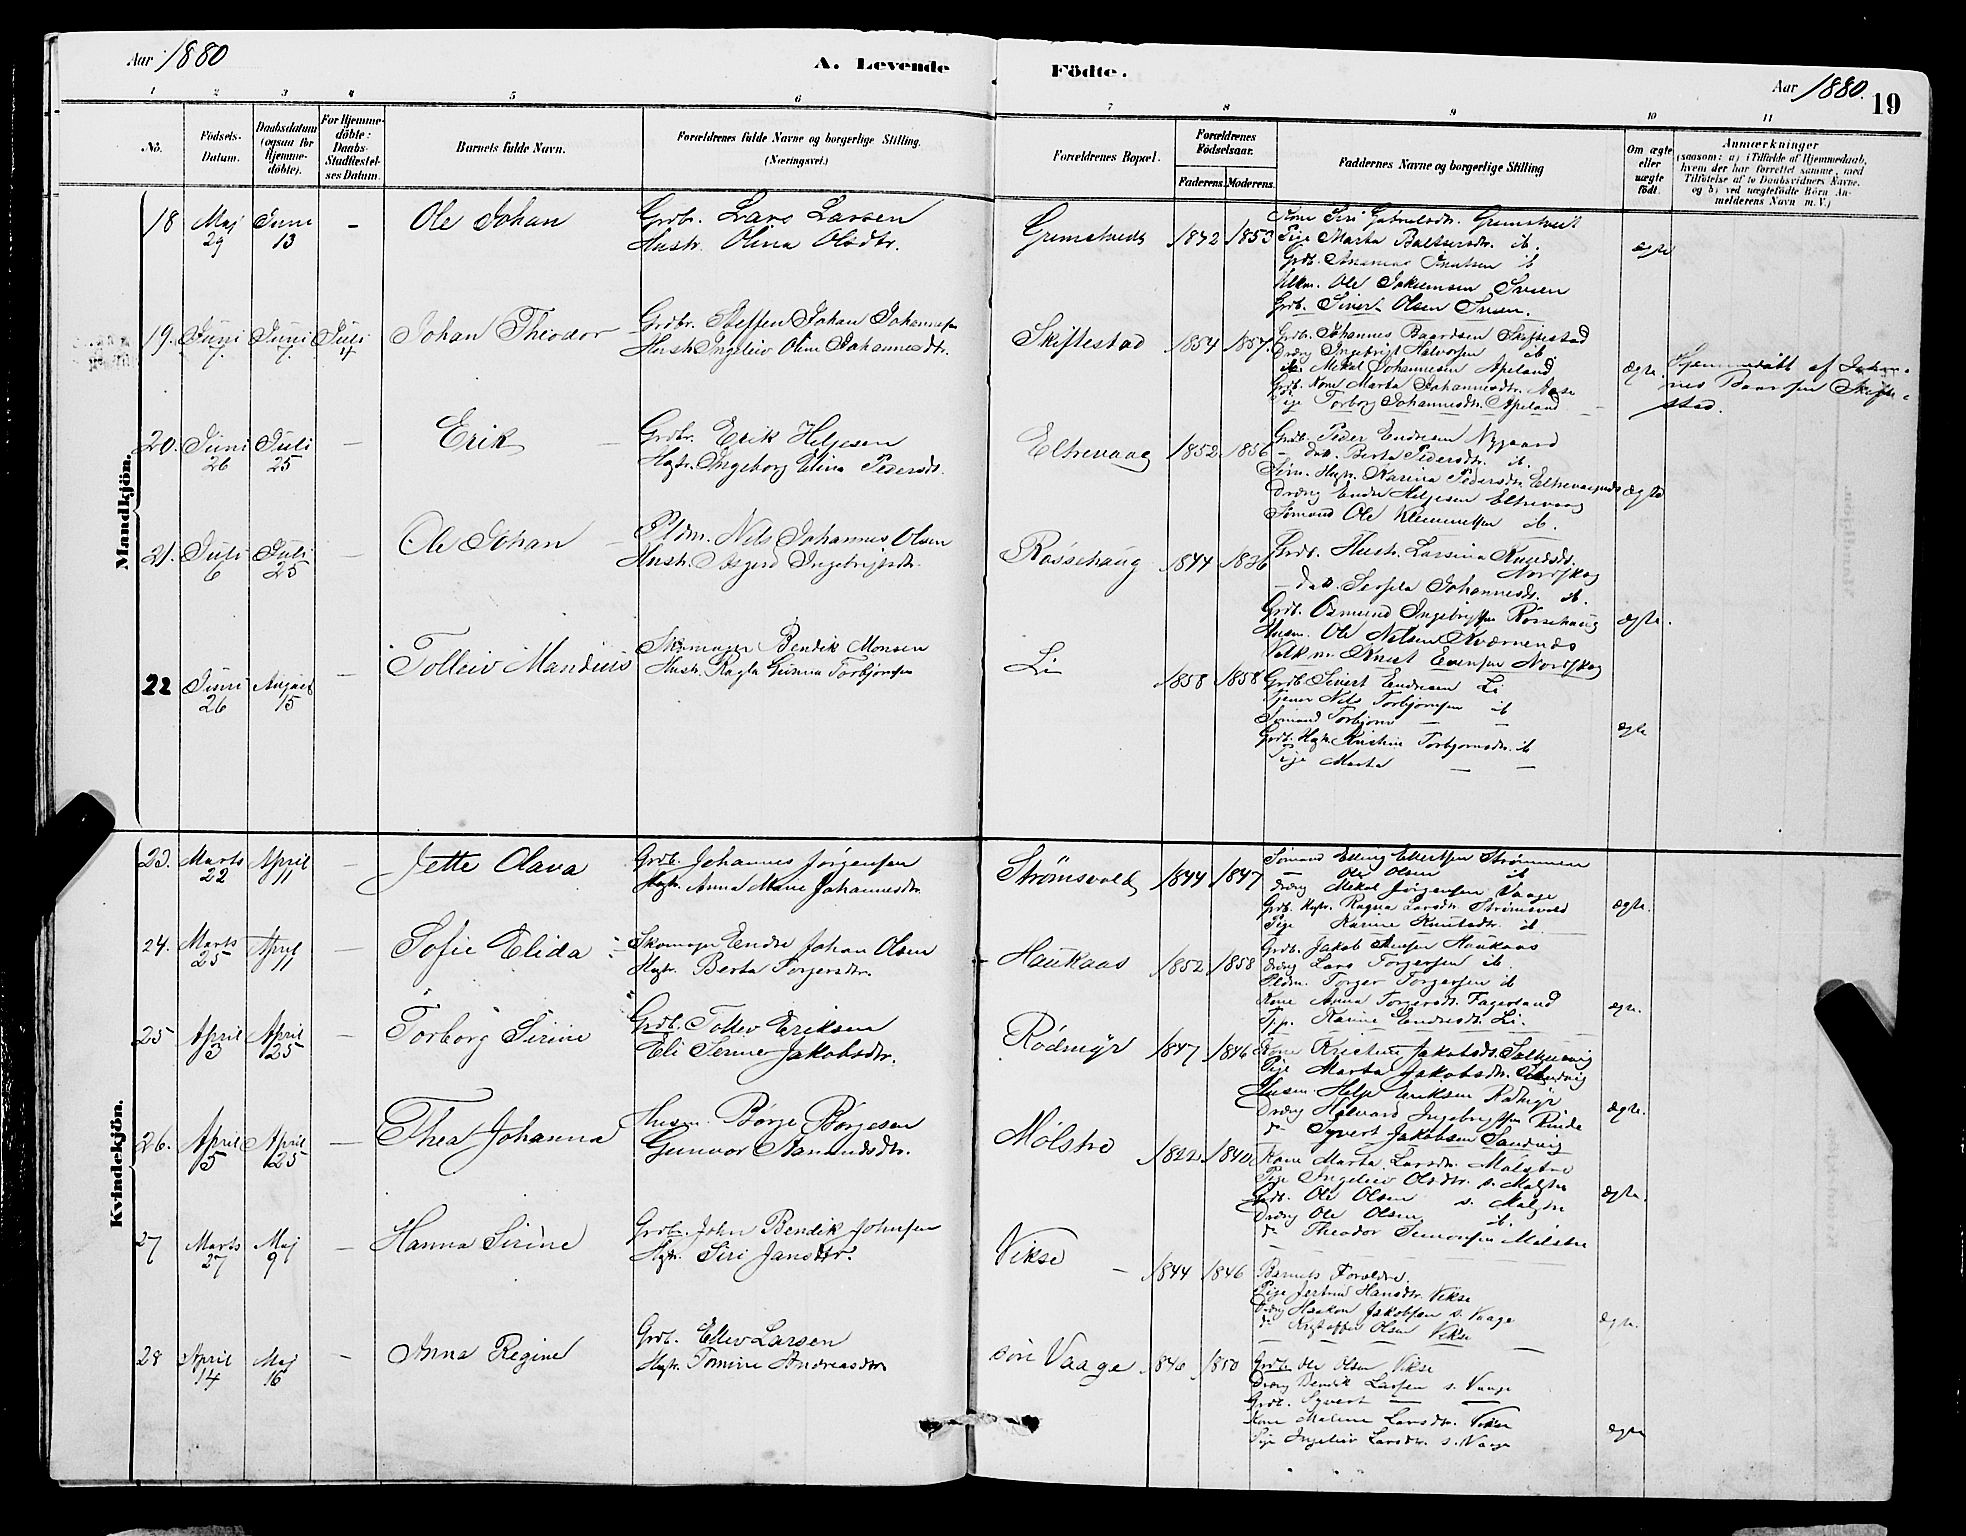 Aar 1880
A. Levende Födte.
Aar 1880.
19
1 2 3 4 5 6 7 8 9 10 11
No.
Födsels-Datum.
Daabsdatum (ogsaa for Hjemme-döbte).
For Hjemme-döbte: Daabs-Stadfæstel-ses Datum.
Barnets fulde Navn.
Forældrenes fulde Navne og borgerlige Stilling.
(Næringsvei.)
Forældrenes Bopæl.
Forældrenes Födselsaar.
Faderens. Moderens.
Faddernes Navne og borgerlige Stilling
Om ægte eller uægte födt.
Anmærkninger
(saasom: a) i Tilfælde af Hjemmedaab,
hvem der har forrettet samme, med
Tilföielse af to Daabsvidners Navne,
og b) ved uægtefödte Börn, An-
melderens Navn m. V.)
Mandkjön.
18 Maj 29 Juni 13 - Ole Johan
Grdb. Lars Larsen
Hustr. Olina Olsdtr.
1842 1853
Kone Siri Gabrielsdtr. Grimstveit
Pige Marta Baltsersdtr. ib.
Grdb. Ananias Knutsen ib
Ole Jakobsen Sveen
Grdb. Sivert Olsen Sveen.
ægte
19. Juni 7. Juni 7. Juli 4 Johan Theodor
Grdbr. Steffen Johan Johannesen
Hustr. Ingeleiv Oline Johannesdtr.
Skiftestad 1854 1857.
Grdb. Johannes Baardsen Skiftestad
Dreng Ingebrigt Halvorsen ib.
do. Mikal Johannesen Apeland
Grdb. Kone Marta Johannesdtr. Aase
Pige Torborg Johannesdtr. Apeland
ægte.
Hjemmedöbt af Johan-
nes Baardsen Skifte-
stad.
20. Juni 26 Juli 25 - Erik
Grdbr. Erik Heljesen
Hustr. Ingeborg Elina Pedersdtr.
Eltrevaag 1852 1856
Grdb. Peder Endresen Nygaard
- do. Berta Pedersdtr. ib.
Söm. Hustr. Karina Pedersdtr. Eltrevaag
Dreng Endre Heljesen Eltrevaag
Sömand Ole Klemmetsen ib.
ægte
21. Juli 6 Juli 25 - Ole Johan
Pldm. Nils Johannes Olsen
Hustr. Asgerd Ingebrigtsdtr.
Rossehaug 1844 1836
Grdb. Hustr. Larsina Knudsdtr. Nordskog
- do. Serina Johannesdtr. ib.
Grdb. Osmund Ingebrigtsen Rossehaug
Husm. Ole Nilsen Kværnenæs
Knut Evensen Nordskog
ægte.
22 Juni 26 August 15 - Tolleiv Mandius
Skomager Bendik Monsen
Hustr. Ragla Gurina Torbjörnsen
Li 1858 1858
Grdb. Sivert Endresen Li
Tjener Nils Torbjörnsen ib
Sömand Torbjörn - -
Grdb. Hustr. Kristine Torbjörnsdtr. ib
Pige Marta - -
ægte
Kvindekjön.
23. Marts 22 April 11 - Jette Olava
Grdb. Johannes Jörgensen
Hustr. Anna Marie Johannesdtr.
Strömsvold 1844 1847
Sömand Elling Ellertsen Strömmen
- Ole Olsen ib
Dreng Mikal Jörgensen Vaage
Grdb. Hustr. Ragna Larsdtr. Strömsvold
Pige Karine Knutsdtr. ib.
ægte.
24. Marts 25 April 11 - Sofie Elida
Skomager Endre Johan Olsen
Hustr. Berta Torgersdtr.
Haukaas 1852 1858
Grdb. Jakob Hansen Haukaas
Dreng Lars Torgersen ib.
Pldm. Torger Torgersen ib
Kone Anna Torgersdtr. Fagerland
Tjp. Karine Endresdtr. Li.
ægte.
25 April 3 April 25 - Torborg Sirine
Grdb. Tollev Eriksen
Eli Serine Jakobsdtr.
Rödmyr 1847 1846
Kone Kristine Jakobsdtr. Salthevig
Pige Marta Jakobsdtr. Sandvig
Husm. Helje Eriksen Rödmyr
Dreng Halvard Ingebrigtsen Rinde
do Syvert Jakobsen Sandvig
ægte.
26. April 5 April 25 - Thea Johanna
Husm. Börge Börgesen
Gunvor Aamundsdtr.
Mölstre 1822 1840
Kone Marta Larsdtr. Mölstre
Pige Ingeleiv Olsdtr. s. Mölstre
Grdb. Ole Olsen s. Mölstre
Dreng Ole Olsen ib.
do Theodor Simonsen Mölstre
ægte.
27 Marts 27 Maj 9 - Hanna Sirine
Grdb. John Bendik Johnsen
Hustr. Siri Jansdtr.
Vikse 1844 1846
Barnets Forældre.
Pige Jertrud Hansdtr. Vikse
Dreng Haakon Jakobsen s. Vaage
do Kristoffer Olsen Vikse
ægte.
28 April 14 Maj 16 - Anna Regine
Grdb. Ellev Larsen
Hustr. Tomine Andreasdtr
söre Vaage 1840 1850
Grdb Ole Olsen Vikse
Dreng Bendik Larsen s. Vaage
Grdb. Syvert - -
Kone Maline Larsdtr. Vikse
Pige Ingeleiv Larsdtr. s. Vaage
ægte